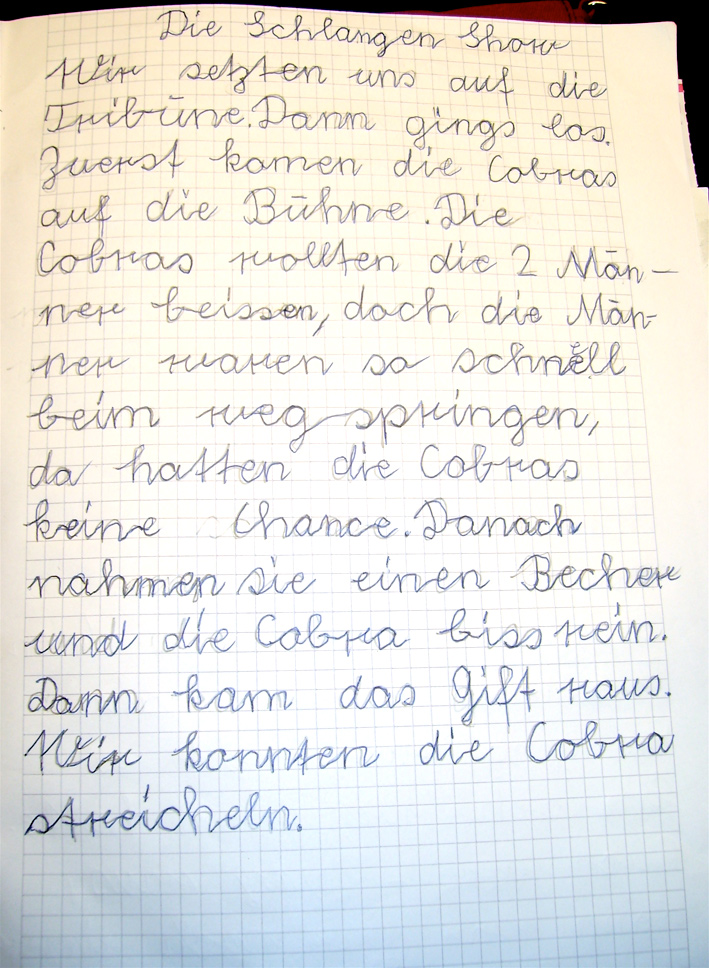 Die Schlangen Show
Wir setzten uns auf die
Tribüne. Dann gings los.
Zuerst kamen die Cobras
auf die Bühne. Die
Cobras wollten die 2 Män-
ner beissen, doch die Män-
ner waren so schnell
beim weg springen,
da hatten die Cobras
keine Chance. Danach
nahmen sie einen Becher
und die Cobra biss rein.
Dann kam das Gift raus.
Wir konnten die Cobra
streicheln.